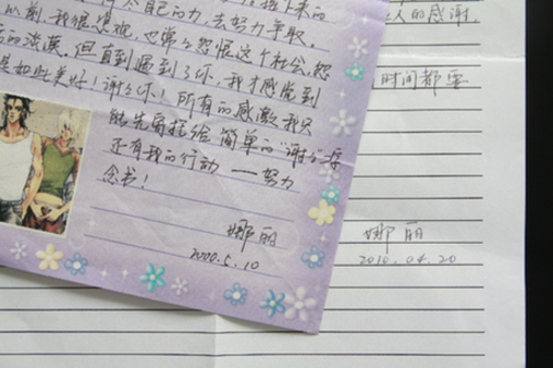 接下来的
自己的力,去努力争取。
以前,我很悲观,也常常怨恨这个社会,怨
的淡漠。但直到遇到了你,我才感觉到
如此美好!谢谢你!所有的感激我只
能先寄托给简单的“谢谢”
还有我的行动——努力
念书!
娜丽
2000.5.10
人的感谢。
时间都要
娜丽
2010.04.20